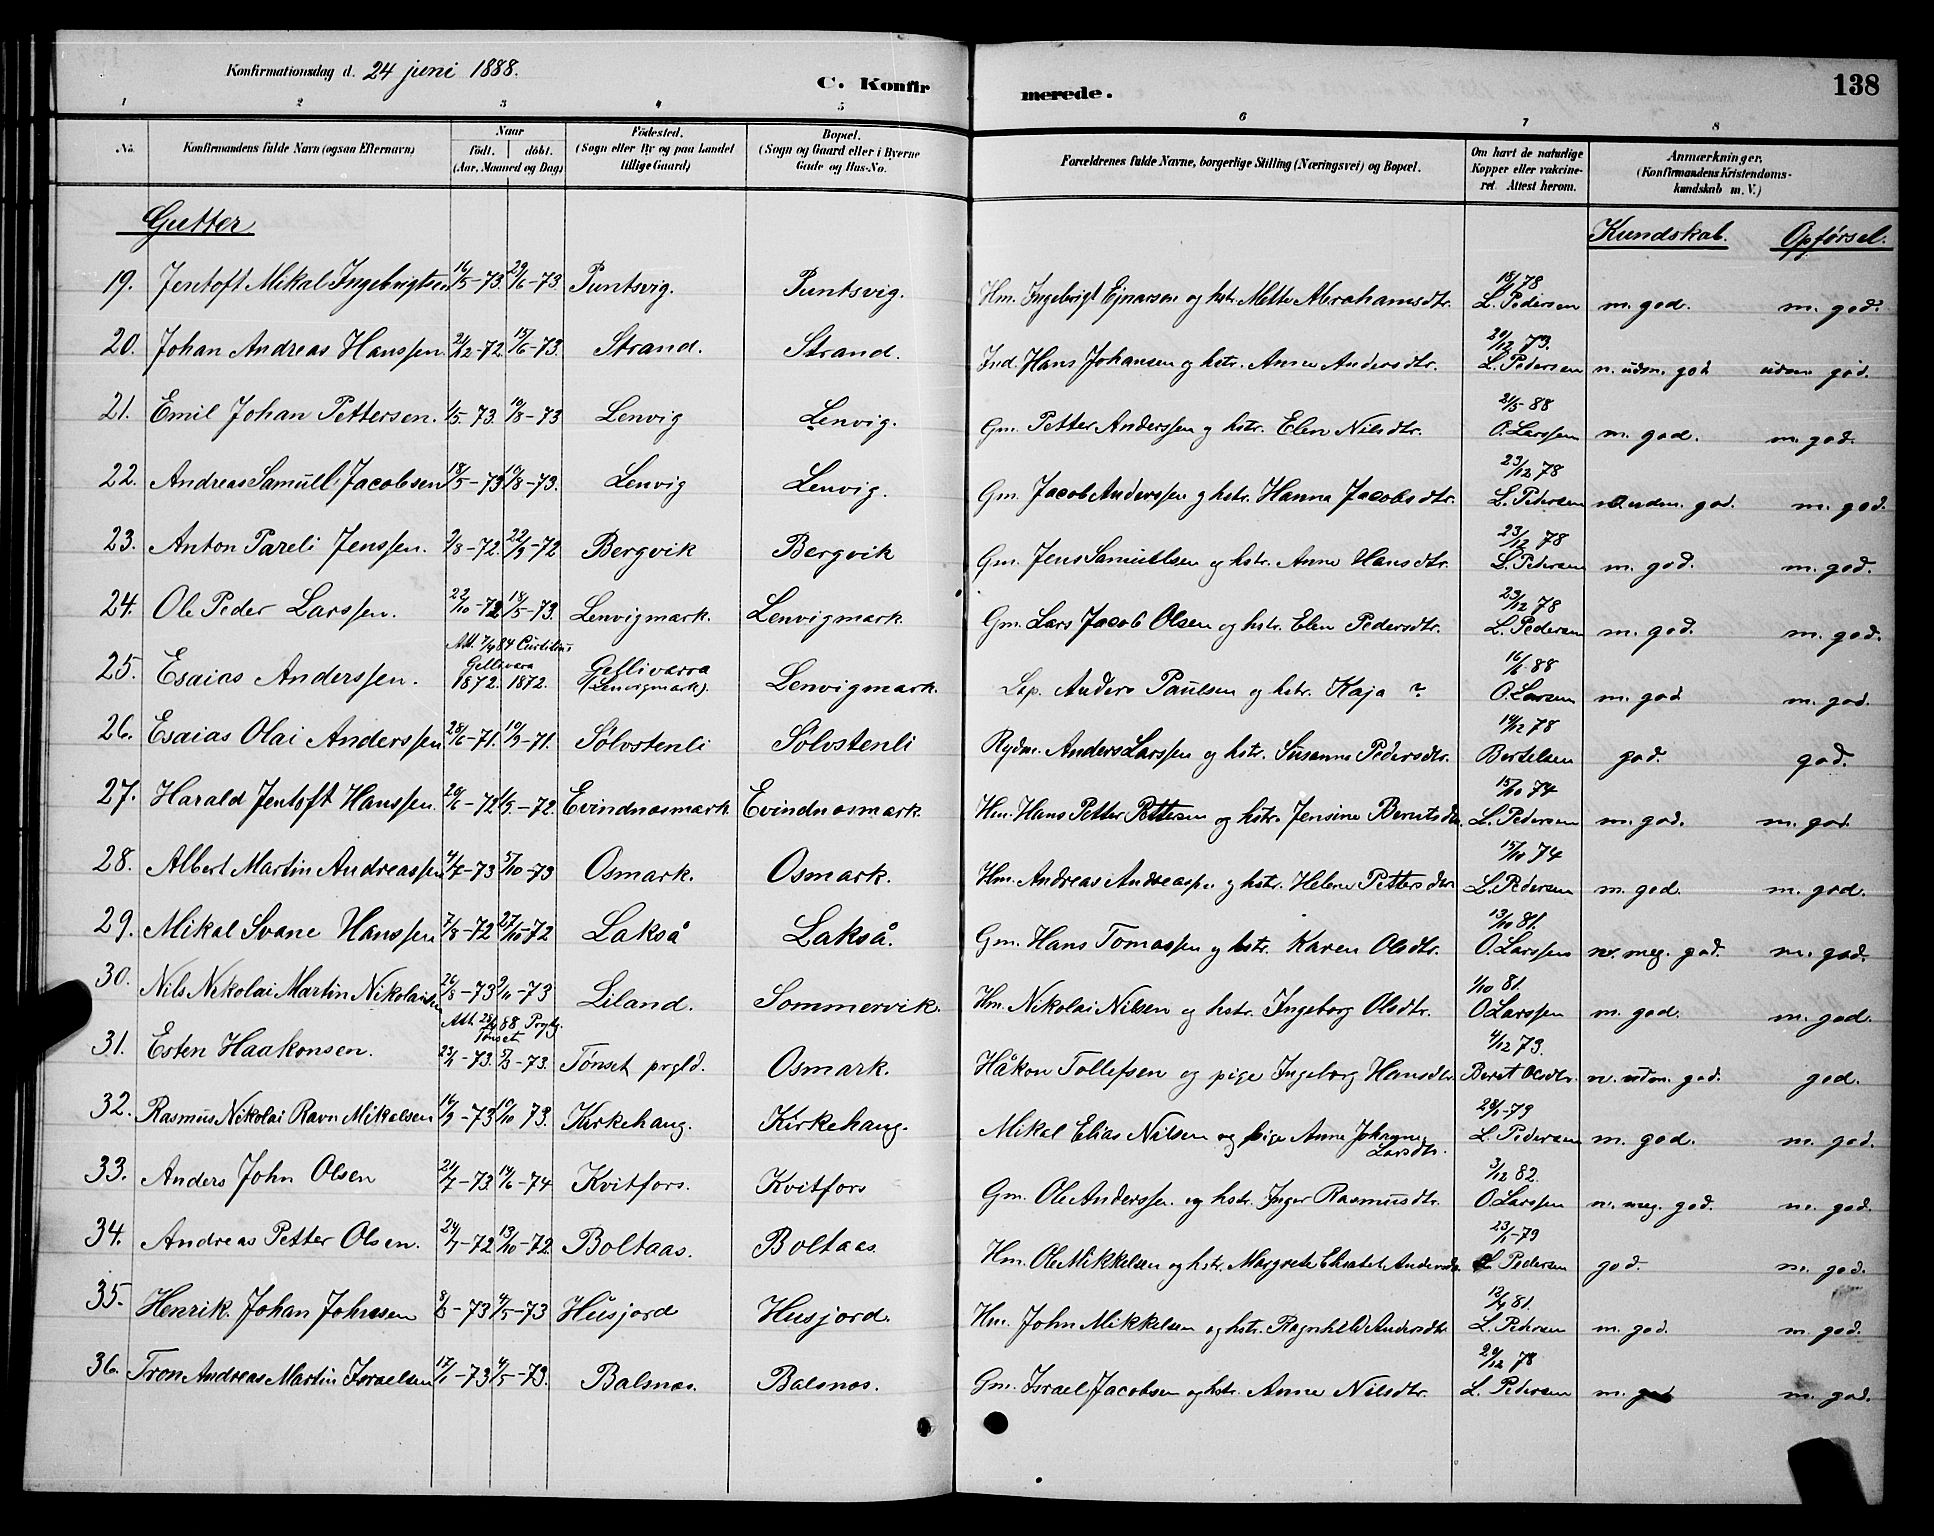 Konfirmationsdag d. 24 juni 1888.
C. Konfirmerede.
138
1 2 3 4 5 6 7 8
No.
Konfirmandens fulde Navn (ogsaa Efternavn)
Naar
födt. döbt.
(Aar, Maaned og Dag)
Födested.
(Sogn eller By og paa Landet tillige Gaard)
Bopæl.
(Sogn og Gaard eller i Byerne Gade og Hus-No.
Forældrenes fulde Navne, borgerlige Stilling (Næringsvei) og Bopæl.
Om havt de naturlige Kopper eller vakcineret. Attest herom.
Anmærkninger.
(Konfirmandens Kristendomskundskab m. V.)
Gutter
Kundskab. Opførsel.
19. Jentoft Mikal Ingebrigtsen 16/5-73. 29/6-73. Puntsvig. Puntsvig. Hm. Ingebrigt Ejnarsen og hstr. Mette Abrahamsdtr. 18/9 78 L. Pedersen m. god. m. god.
20. Johan Andreas Hanssen. 21/12-72. 15/6-73. Strand. Strand. Ind. Hans Johansen og hstr. Anne Andersdtr. 20/12 73. L. Pedersen n. udm. god udm. god.
21. Emil Johan Pettersen. 1/5-73. 10/8-73 Lenvig Lenvig. Gm. Petter Anderssen og hstr. Elen Nilsdtr. 21/5 88 O. Larssen m. god. m. god.
22. Andreas Samull Jacobsen 18/5-73 10/8-73. Lenvig Lenvig. Gm. Jacob Anderssen og hstr. Hanna Jacobsdtr. 23/12 78 L. Pedersen n. udm. god. m. god.
23. Anton Pareli Jenssen. 2/8-72. 22/9-72 Bergvik Bergvik Gm. Jens Samuelsen og hstr. Anne Hansdtr. 23/12 78 L. Pedersen m. god. m. god.
24. Ole Peder Larssen. 22/10-72 18/5-73. Lenvigmark. Lenvigmark. Gm. Lars Jacob Olsen og hstr. Elen Pedersdtr. 23/12 78 L. Pedersen m. god. m. god.
Att. 7/4 84
25. Esaias Anderssen. Gellivara 1872. 1872. Gellivarra (Lenvigmark). Lenvigmark. Lap. Anders Paulsen og hstr. Kaja ? 16/6 88 O. Larsen m. god m. god.
26. Esaias Olai Anderssen 28/6-71. 10/9-71. Sølvstenli Sølvstenli Rydm. Anders Larssen og hstr. Susanne Pedersdtr. 14/12 78 Bertelsen god. god.
27. Harald Jentoft Hanssen. 20/6-72 1/9-72. Evindnæsmark Evindnæsmark. Hm. Hans Petter Pettersen og hstr. Jensine Berntsdtr. 15/10 74 L. Pedersen m. god. m. god.
28. Albert Martin Andreassen 4/7-73 5/10-73 Osmark. Osmark. Hm. Andreas Andreassen og hstr. Helene Pettersdtr 15/10 74 L. Pedersen m. god. m. god.
29. Mikal Svane Hanssen 7/8-72 27/10-72 Lakså Lakså. Gm. Hans Tomassen og hstr. Karen Olsdtr. 13/10 81. O. Larssen n. meg. god. m. god.
30. Nils Nikolai Martin Nikolaisen 26/8-73 9/11-73 Liland. Sommervik. Hm. Nikolai Nilsen og hstr. Ingeborg Olsdtr. 1/10 81. O Larssen m. god. m. god.
Att. 88 Prgld. Tønset
31. Esten Haakonsen. 23/1-73. 5/3-73. Tønset prgld. Osmark. Håkon Tollefsen og pige Ingeborg Hansdtr. 4/12 73. Beret Olsdtr. n. udm. god. god.
32. Rasmus Nikolai Ravn Mikalsen 16/9-73 19/10 73. Kirkehaug. Kirkehaug. Mikal Elias Nilsen og pige Anne Johanne Larsdtr. 28/1-79 L. Pedersen m. god. m. god.
33. Anders John Olsen 24/7-73 14/6-74 Kvitfors. Kvitfors Gm. Ole Anderssen og hstr. Inger Rasmusdtr. 3/12 82. O Larssen n. meg. god. m. god.
34. Andreas Petter Olsen. 24/7-72 13/10-72. Boltaas. Boltaas. Hm. Ole Mikkelsen og hstr. Margrete Elisabet Andersdtr 23/1-79 L Pedersen god. m. god.
35. Henrik Johan Johnsen 8/3-73 4/5-73 Husjord Husjord. Hm. John Mikkelsen og hstr. Ragnhild Andersdtr. 12/4 81. L. Pedersen m. god. m. god.
36. Tron Andreas Martin Israelsen 17/1-73 4/5-73. Balsnæs. Balsnæs. Gm. Israel Jacobsen og hstr. Anne Nilsdtr. 20/12 78 L. Pedersen m. god m. god.